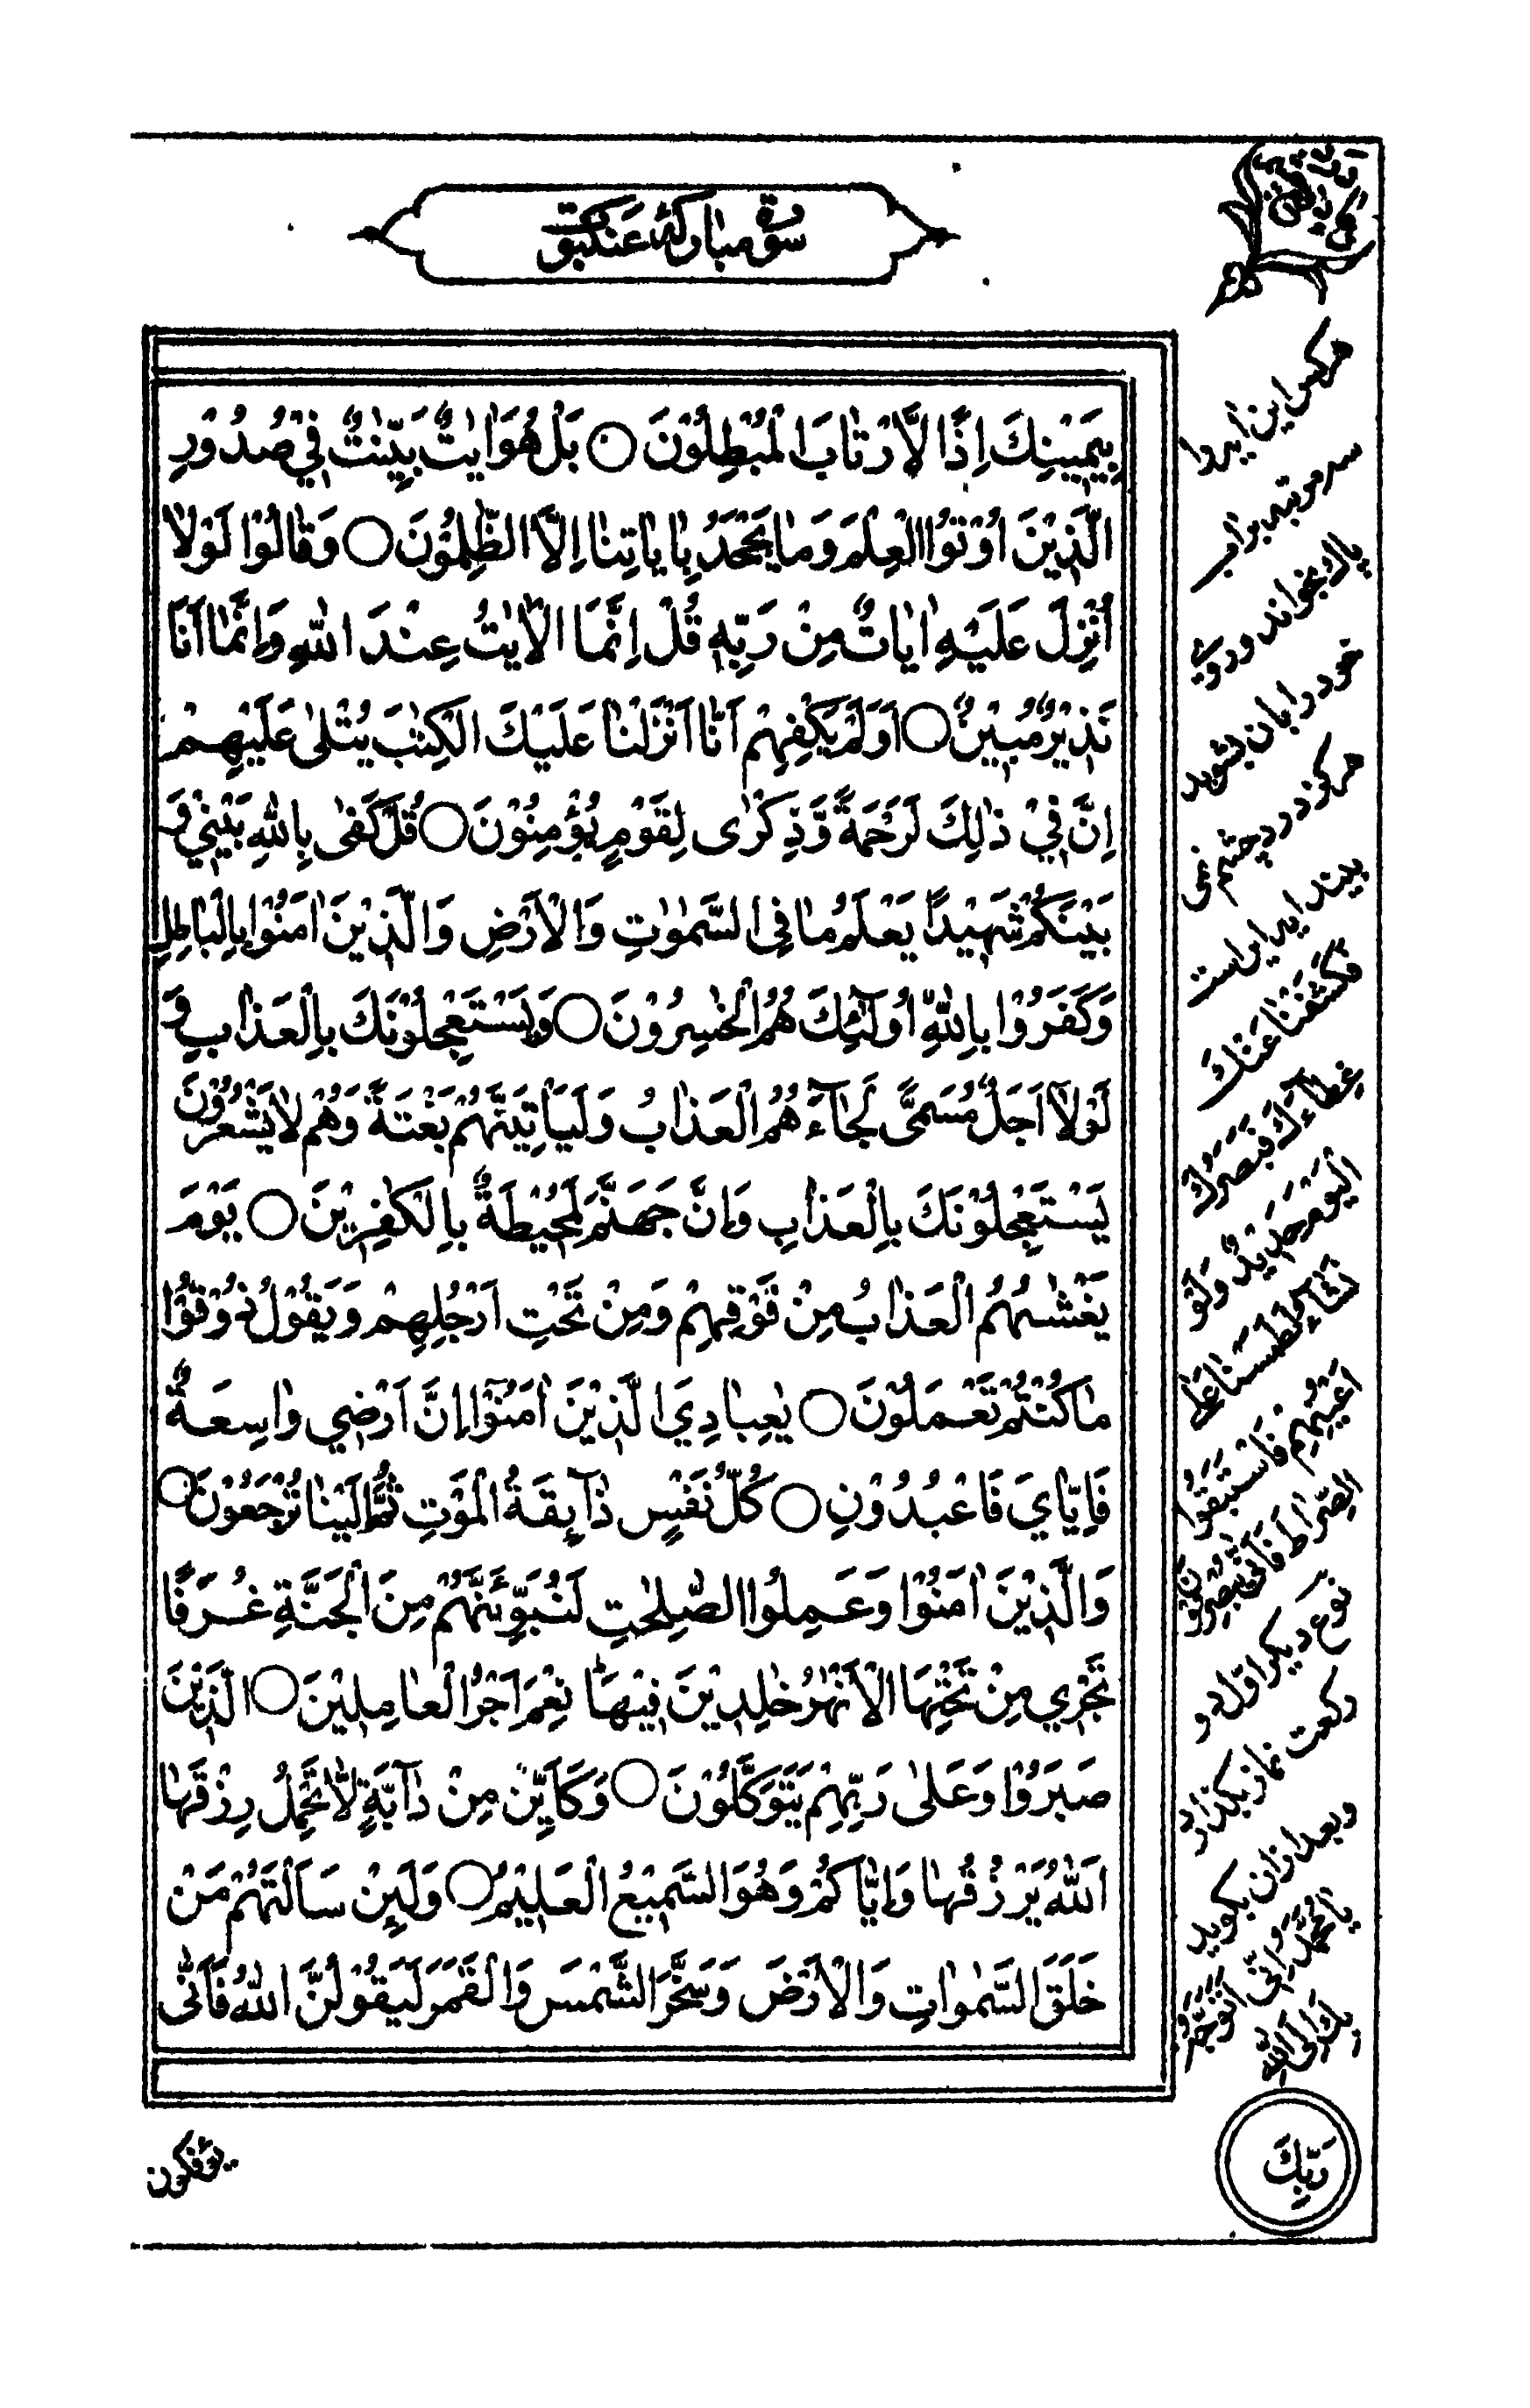 سورة مبارکهٔ عنکبوت
بِيَمِيْنِكَ اِذًا لَّارْتٰابَ الْمُبْطِلُوْنَ ○ بَلْ هُوَ اٰيٰتٌ بَيِّنٰتٌ فِيْ صُدُوْرِ
الَّذِيْنَ اُوْتُوا الْعِلْمَ وَمٰا يَجْحَدُ بِاٰيٰاتِنٰا اِلَّا الظّٰلِمُوْنَ ○ وَقٰالُوْا لَوْلٰا
اُنْزِلَ عَلَيْهِ اٰيٰاتٌ مِنْ رَبِّهٖ قُلْ اِنَّمَا الْاٰيٰتُ عِنْدَ اللّٰهِ وَاِنَّمٰا اَنَا
نَذِيْرٌ مُبِيْنٌ ○ اَوَلَمْ يَكْفِهِمْ اَنّٰا اَنْزَلْنٰا عَلَيْكَ الْكِتٰبَ يُتْلٰى عَلَيْهِمْ
اِنَّ فِيْ ذٰلِكَ لَرَحْمَةً وَّذِكْرٰى لِقَوْمٍ يُؤْمِنُوْنَ ○ قُلْ كَفٰى بِاللّٰهِ بَيْنِيْ وَ
بَيْنَكُمْ شَهِيْدًا يَعْلَمُ مٰا فِى السَّمٰوٰتِ وَالْاَرْضِ وَالَّذِيْنَ اٰمَنُوْا بِالْبٰاطِلِ
وَكَفَرُوْا بِاللّٰهِ اُولٰٓئِكَ هُمُ الْخٰسِرُوْنَ ○ وَيَسْتَعْجِلُوْنَكَ بِالْعَذٰابِ وَ
لَوْلٰٓا اَجَلٌ مُسَمًّى لَجٰٓاءَهُمُ الْعَذٰابُ وَلَيَاْتِيَنَّهُمْ بَغْتَةً وَهُمْ لٰا يَشْعُرُوْنَ
يَسْتَعْجِلُوْنَكَ بِالْعَذٰابِ وَاِنَّ جَهَنَّمَ لَمُحِيْطَةٌ بِالْكٰفِرِيْنَ ○ يَوْمَ
يَغْشٰيهُمُ الْعَذٰابُ مِنْ فَوْقِهِمْ وَمِنْ تَحْتِ اَرْجُلِهِمْ وَيَقُوْلُ ذُوْقُوْا
مٰا كُنْتُمْ تَعْمَلُوْنَ ○ يٰعِبٰادِيَ الَّذِيْنَ اٰمَنُوْٓا اِنَّ اَرْضِيْ وٰاسِعَةٌ
فَاِيّٰايَ فَاعْبُدُوْنِ ○ كُلُّ نَفْسٍ ذٰٓائِقَةُ الْمَوْتِ ثُمَّ اِلَيْنٰا تُرْجَعُوْنَ ○
وَالَّذِيْنَ اٰمَنُوْا وَعَمِلُوا الصّٰلِحٰتِ لَنُبَوِّئَنَّهُمْ مِنَ الْجَنَّةِ غُرَفًا
تَجْرِيْ مِنْ تَحْتِهَا الْاَنْهٰرُ خٰلِدِيْنَ فِيْهٰا نِعْمَ اَجْرُ الْعٰامِلِيْنَ ○ الَّذِيْنَ
صَبَرُوْا وَعَلٰى رَبِّهِمْ يَتَوَكَّلُوْنَ ○ وَكَاَيِّنْ مِنْ دٰٓابَّةٍ لّٰا تَحْمِلُ رِزْقَهٰا
اَللّٰهُ يَرْزُقُهٰا وَاِيّٰاكُمْ وَهُوَ السَّمِيْعُ الْعَلِيْمُ ○ وَلَئِنْ سَاَلْتَهُمْ مَنْ
خَلَقَ السَّمٰوٰاتِ وَالْاَرْضَ وَسَخَّرَ الشَّمْسَ وَالْقَمَرَ لَيَقُوْلُنَّ اللّٰهُ فَاَنّٰى
يؤفکون
هرکس این ایه را
سه مرتبه برابر
بخواند و دروی
خود را بان بشوید
هرکز درد چشم نمی
بیند ایه این است
فَكَشَفْنٰا عَنْكَ
غِطٰاءَكَ فَبَصَرُكَ
الْيَوْمَ حَدِيْدٌ وَلَوْ
نَشٰاءُ لَطَمَسْنٰا عَلٰى
اَعْيُنِهِمْ فَاسْتَبَقُوا
الصِّرٰاطَ فَاَنّٰى يُبْصِرُوْنَ
نوع دیکر اوّل دو
رکعت نماز بکذارد
و بعد ازان بکوید
يٰا مُحَمَّدُ اِنّى اَتَوَجَّهُ
بِكَ اِلَى اللّٰهِ
رَبِّكَ